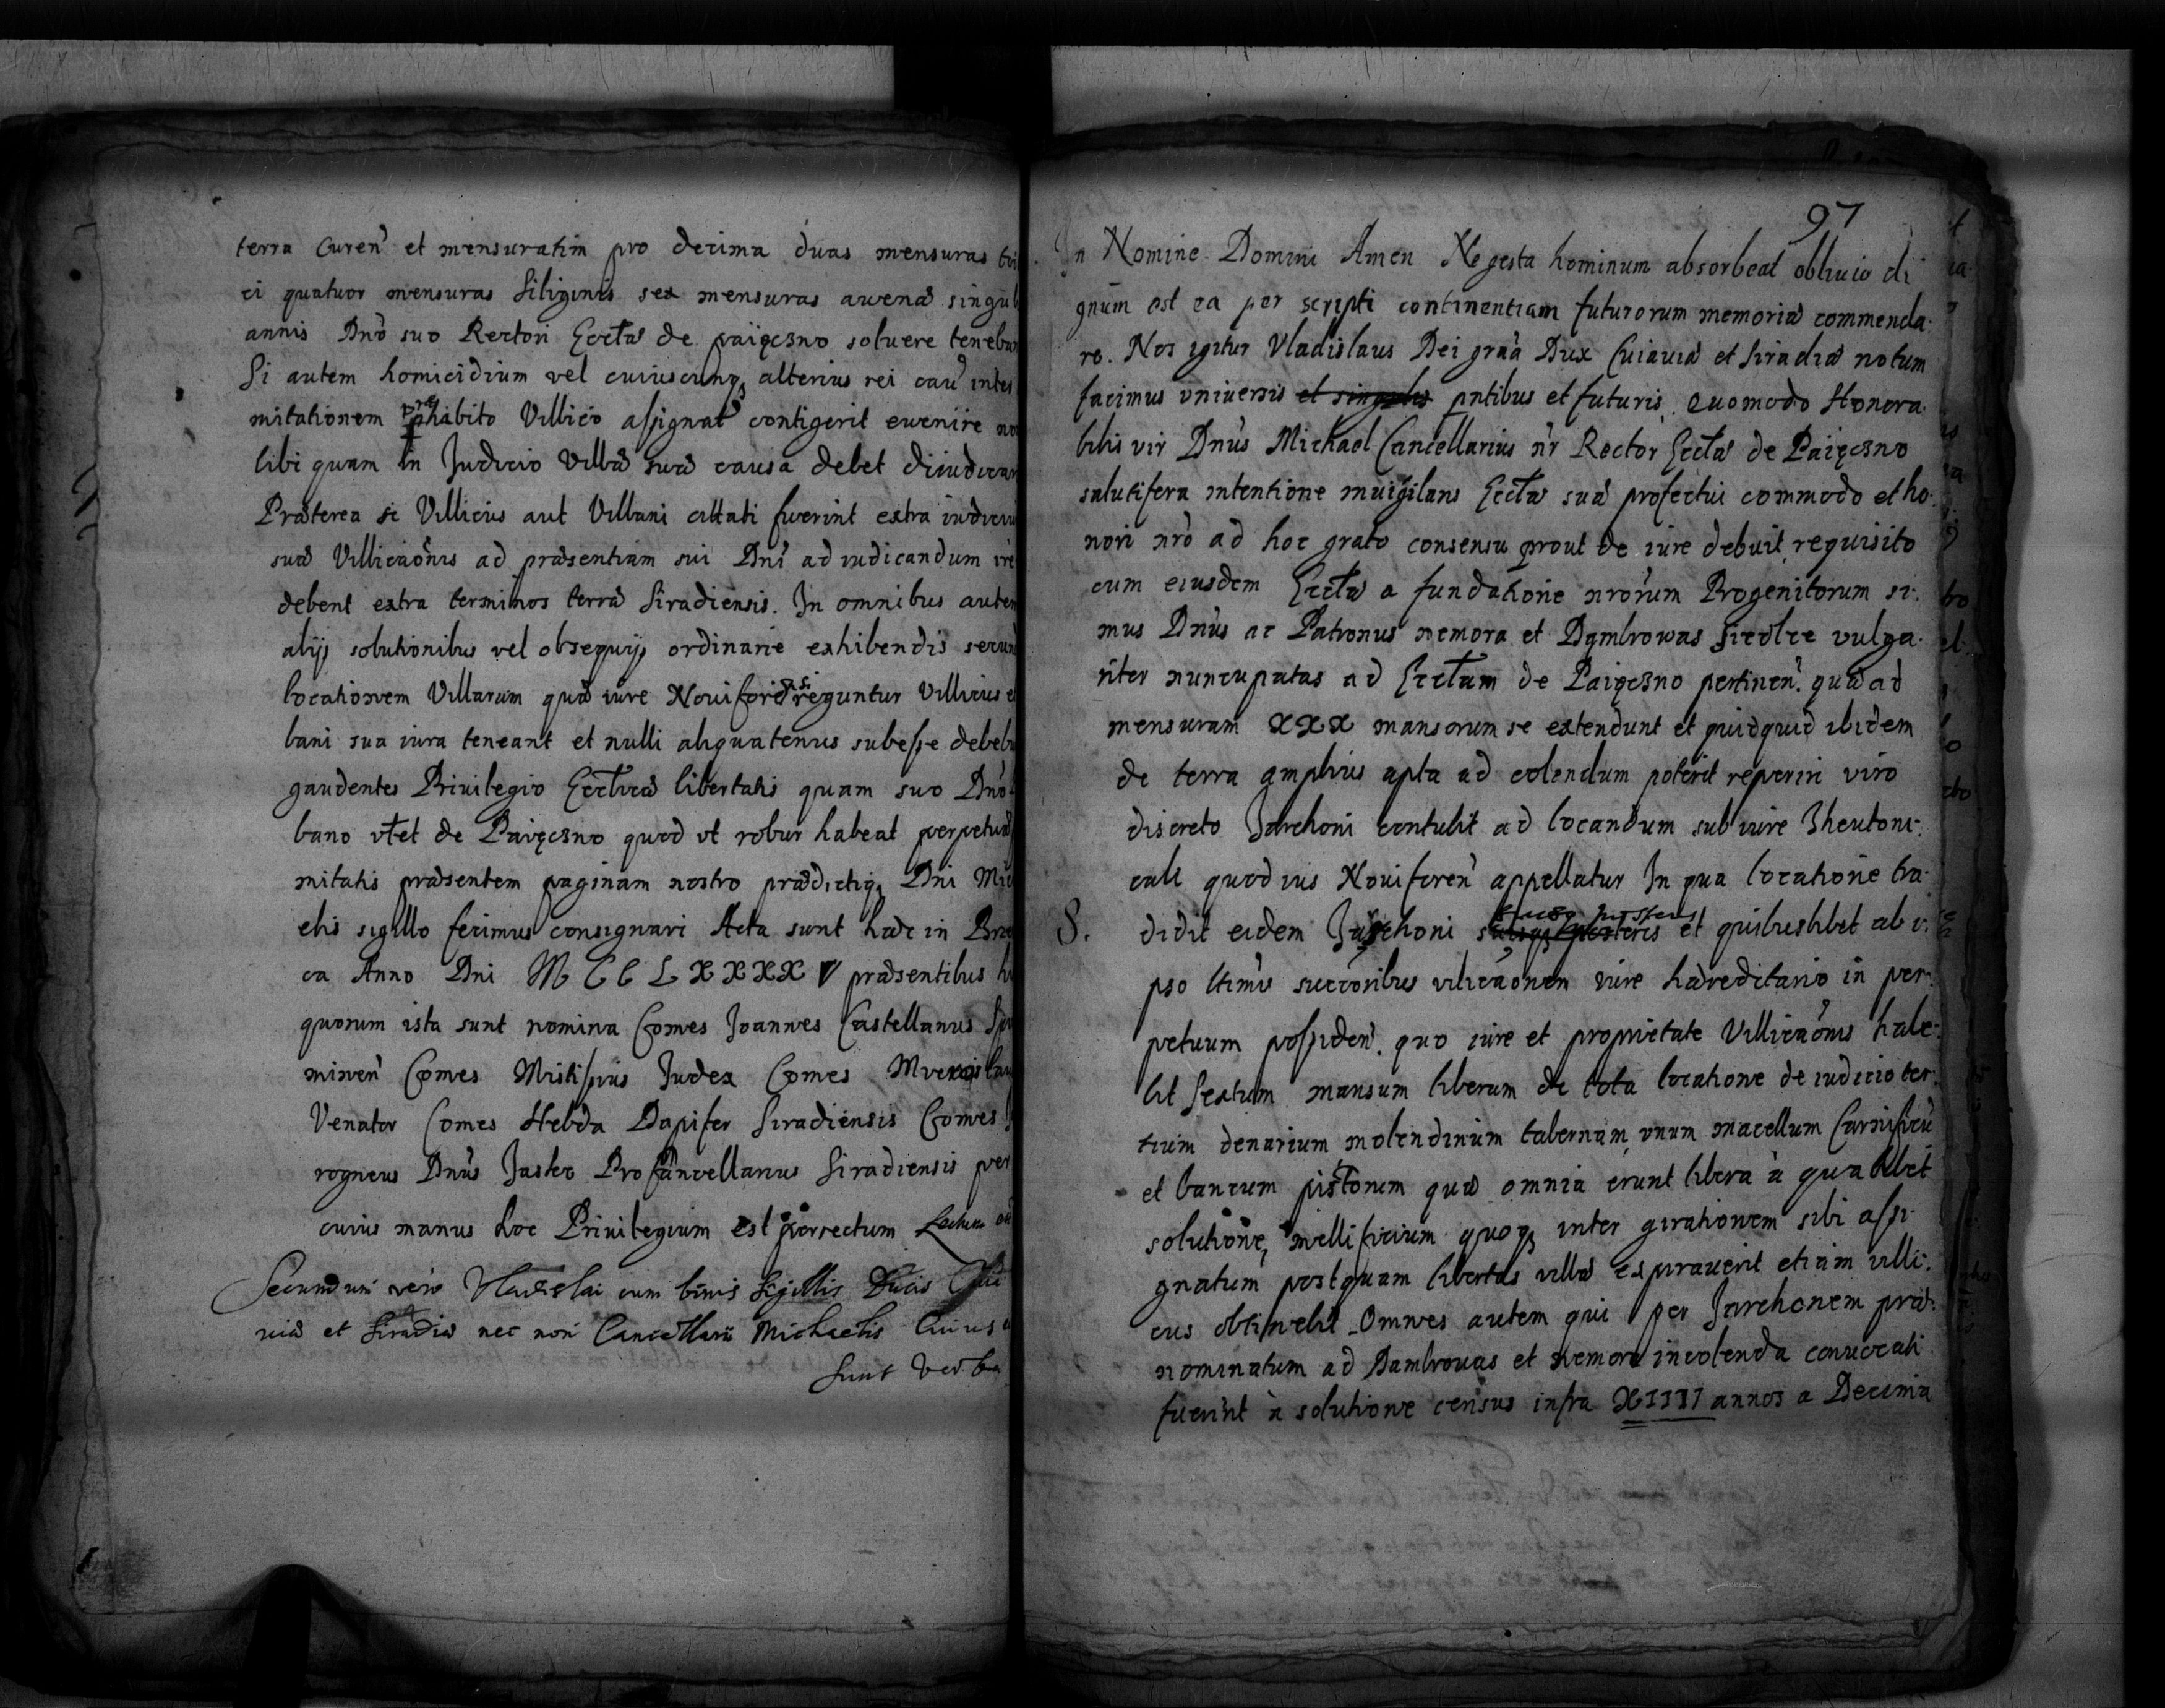 terra Curen et mensuratim pro decima duas mensuras tri
ci quatuor mensuras Siliginis sex mensuras auenæ singul
annis Dnō suo Rectori Eccłæ de paięczno soluere tenebun
Si autem homicidium vel cuiuscunq alterius rei cau intes
mitationem præhabito Villico assignat contigerit euenire no
libi quam in Judicio Villæ suæ causa debet diiudicari
Præterea si Villicus aut Villani cittati fuerint extra iudiciu
suæ Villicaōnis ad præsentiam sui Dnī ad iudicandum ire
debent extra terminos terræ Siradiensis. In omnibus autem
alijs solutionibus vel obsequijs ordinarie exhibendis secund
locationem Villarum quæ iure Nouifori reguntur Villicus e
bani sua iura teneant et nulli aliquatenus subesse debebu
gaudentes Priuilegio Eccticæ libertatis quam suo Dnō
bano vtet de Paięczno quod vt robur habeat perpetuæ
mitatis præsentem paginam nostro prædictiq Dni Mic
elis sigillo fecimus consignari Acta sunt hæc in Brze
ca Anno Dni M C C L X X X X V præsentibus hi
quorum ista sunt nomina Comes Joannes Castellanus Spi
minen Comes Mistissius Judex Comes Mirosslau
Venator Comes Hebda Dapifer Siradiensis Comes
rogneus Dnūs Jasko Procancellarius Siradiensis per
cuius manus hoc Priuilegium est porrectum
Secundum vero Vladislai cum binis Sigillis Ducis Cuia
uiæ et Siradiæ nec non Cancellarii Michaelis Cuius
sunt verba
97
In Nomine Domini Amen Ne gesta hominum absorbeat obliuio di
gnūm est ea per scripti continentiam futurorum memoriæ commenda:
re. Nos igitur Vladislaus Dei graā Dux Cuiauiæ et Siradiæ notum
facimus vniuersis et singulis pntibus et futuris. Quomodo Honora
bilis vir Dnūs Michael Cancellarius nr̄ Rector Eccłæ de Paięczno
salutifera intentione inuigilans Eccłæ suæ profectui commodo et ho:
nori nrō ad hoc grato consensu prout de iure debuit requisito
cum eiusdem Eccłæ a fundatione nrōrum Progenitorum si:
mus Dnūs ac Patronus nemora et Dąmbrowas Siedlce vulga:
riter nuncupatas ad Eccłam de Paięczno pertinen. quæ ad
mensuram XXX mansorum se extendunt et quidquid ibidem
de terra amplius apta ad colendum poterit reperiri viro
discreto Jarchoni contulit ad locandum sub iure Theutoni:
cali quod ius Nouiforen appellatur In qua locatione tra:
S. didit eidem Jarchoni suisq posteris suisq posteris et quibuslibet ab i:
pso ltimis succōribus vilicaōnem iure hæreditario in per:
petuum possiden. quo iure et proprietate Villicaōnis habe:
bit Sextum mansum liberum de tota locatione de iudicio ter:
tium denarium molendinum tabernam vnum macellum Carnificū
et bancum pistorum quæ omnia erunt libera à qualibet
solutione, mellificium quoq inter girationem sibi assi
gnatum postquam libertas villæ expirauerit etiam villi:
cus obtinebit. Omnes autem qui per Jarchonem præ:
nominatum ad Dambrouas et nemora incolenda conuocati
fuerint à solutione census infra XIIII annos a Decima